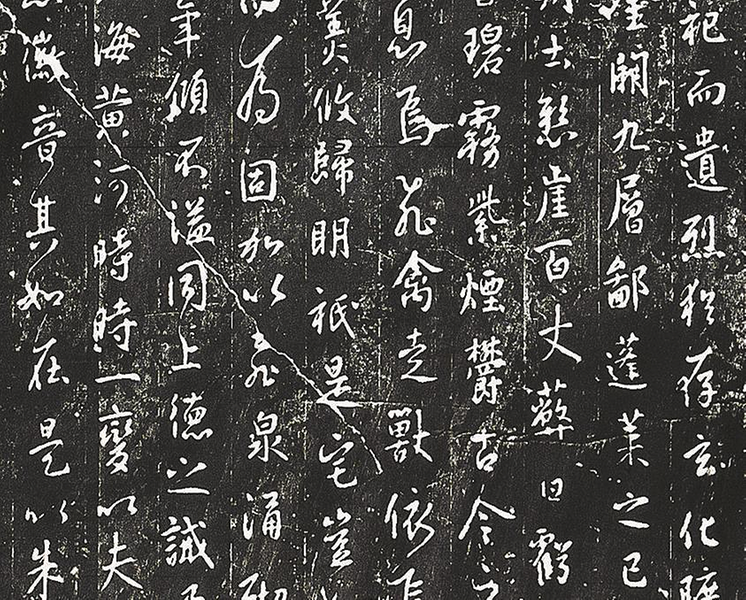 祀而遺烈猶存玄化曠
闕九層鄙蓬萊之已
士懸崖百丈蔽日虧
碧霧紫煙鬱古今之
息焉飛禽走獸依
美攸歸明祇是宅豈
為固加以飛泉涌砌
年傾不溢同上德之誠
海黃河時時一變以夫
徽音其如在是以朱